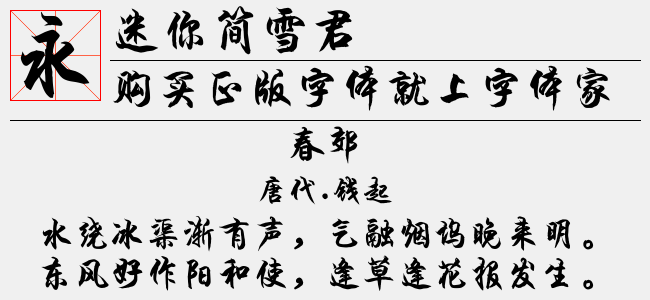 永
迷你简雪君
购买正版字体就上字体家
春郊
唐代.钱起
水绕冰渠渐有声，气融烟坞晚来明。
东风好作阳和使，逢草逢花报发生。